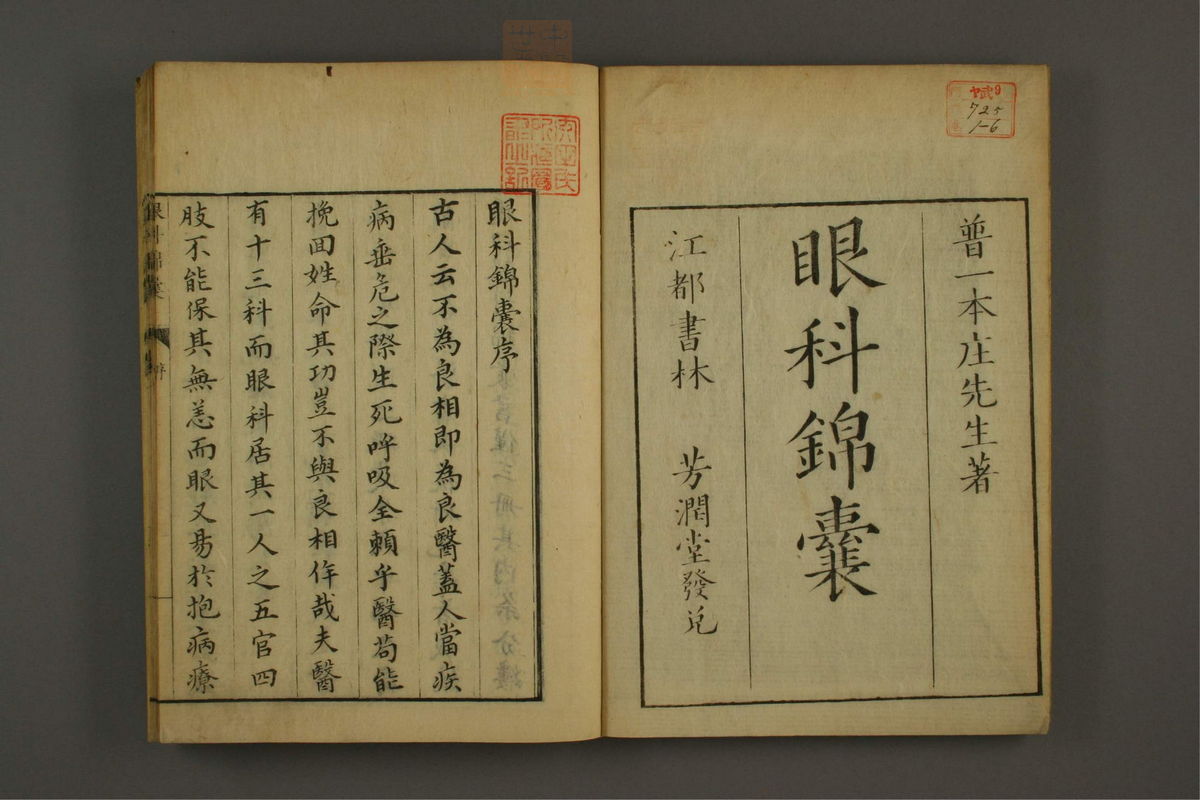 普一本庄先生著
眼科錦囊
江都書林 芳潤堂發兌
ヤ9
725
1-6
眼科錦囊序
古人云不為良相即為良醫蓋人當疾
病垂危之際生死呼吸全賴乎醫苟能
挽回姓命其功豈不與良相侔哉夫醫
有十三科而眼科居其一人之五官四
肢不能保其無恙而眼又易於抱病療
眼科錦囊
序